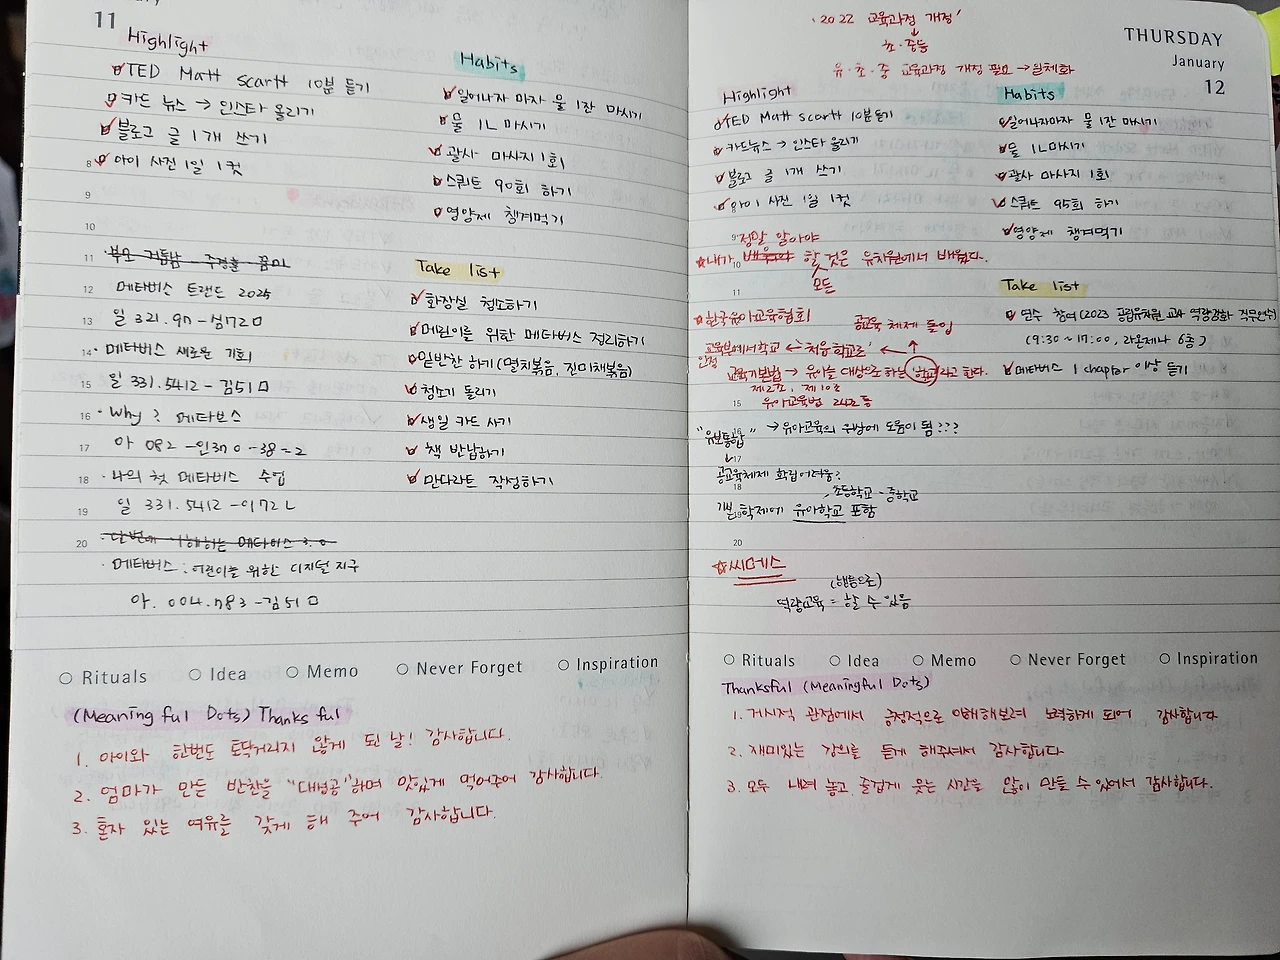 11
Highlight
TED Matt scartt 10분 듣기
카드 뉴스 → 인스타 올리기
블로그 글 1개 쓰기
8 아이 사진 1일 1컷
9
10
11
12 메타버스 트렌드 2025
13 일 321.97-심72ㅁ
14 · 메타버스 새로운 기회
15 일 331.5412 - 김51ㅁ
16 · Why? 메타버스
17 아 082 -인370-38=2
18 · 나의 첫 메타버스 수업
19 일 331.5412 -이72ㄴ
20 단번에 이해하는 메타버스 3.0
· 메타버스 : 어린이를 위한 디지털 지구
아. 004.783-김51ㅁ
Habits
일어나자 마자 물 1잔 마시기
물 1L 마시기
괄사 마사지 1회
스쿼트 90회 하기
영양제 챙겨먹기
Take list
화장실 청소하기
메린이를 위한 메타버스 정리하기
밑반찬 하기(멸치볶음, 진미채볶음)
청소기 돌리기
생일 카드 사기
책 반납하기
만다라트 작성하기
Rituals Idea Memo Never Forget Inspiration
(Meaningful Dots) Thanksful
1. 아이와 한번도 토닥거리지 않게 된 날! 감사합니다.
2. 엄마가 만든 반찬을 "대성공"하며 맛있게 먹어주어 감사합니다.
3. 혼자 있는 여유를 갖게 해 주어 감사합니다.
'2022 교육과정 개정'
↓
초·중등
유·초·중 교육과정 개정 필요 → 일체화
THURSDAY
January
12
Highlight
TED Matt scartt 10분 듣기
카드뉴스 → 인스타 올리기
블로그 글 1개 쓰기
아이 사진 1일 1컷
Habits
일어나자마자 물 1잔 마시기
물 1L 마시기
괄사 마사지 1회
스쿼트 95회 하기
영양제 챙겨먹기
9 정말 알아야
☆내가 배워야 할 것은 유치원에서 배웠다.
10
모든
11
☆한국유아교육협회
공교육 체제 돌입
교육부에서 학교 ↔ '처음학교로' ←
인정
교육기본법 → 유아를 대상으로 하는 '학교'라고 한다.
제2조, 제10조
15 유아교육법 24조 등
16
"유보통합" → 유아교육의 우방에 도움이 됨???
↓ 17
공교육체제 확립 어려움?
18
초등학교·중학교
19 기본 학제에 유아학교 포함
20
☆씨메스
(행동으로)
역량교육 = 할 수 있음
Take list
연수 참여(2023 공립유치원 교사 역량강화 직무연수)
(9:30 ~ 17:00, 라온제나 6층)
메타버스 1 chapter 이상 듣기
Rituals Idea Memo Never Forget Inspiration
Thanksful (Meaningful Dots)
1. 거시적 관점에서 긍정적으로 이해해보려 노력하게 되어 감사합니다
2. 재미있는 강의를 듣게 해주셔서 감사합니다
3. 모두 내려 놓고 즐겁게 웃는 시간을 많이 만들 수 있어서 감사합니다.